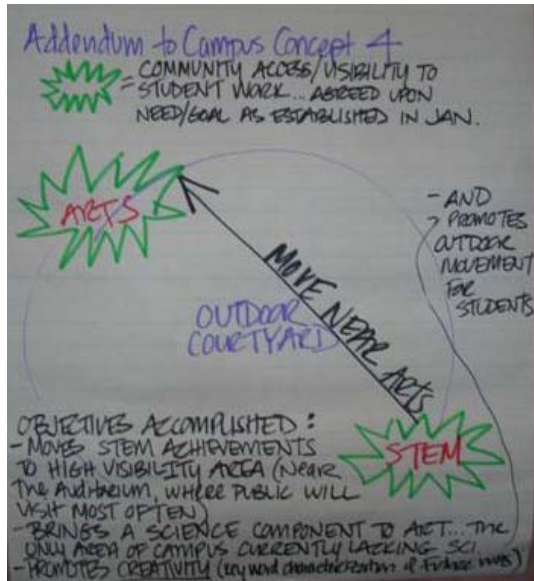 Addendum to Campus Concept 4
= COMMUNITY ACCESS/VISIBILITY TO
STUDENT WORK... AGREED UPON
NEED/GOAL AS ESTABLISHED IN JAN.
ARTS
- AND
PROMOTES
OUTDOOR
MOVEMENT
FOR
STUDENTS
MOVE NEAR ARTS
OUTDOOR
COURTYARD
STEM
OBJECTIVES ACCOMPLISHED:
- MOVES STEM ACHIEVEMENTS
TO HIGH VISIBILITY AREA (Near
The Auditorium, WHERE PUBLIC WILL
VISIT MOST OFTEN)
- BRINGS A SCIENCE COMPONENT TO ART... THE
ONLY AREA OF CAMPUS CURRENTLY LACKING SCI.
- PROMOTES CREATIVITY (key word characterization of Future